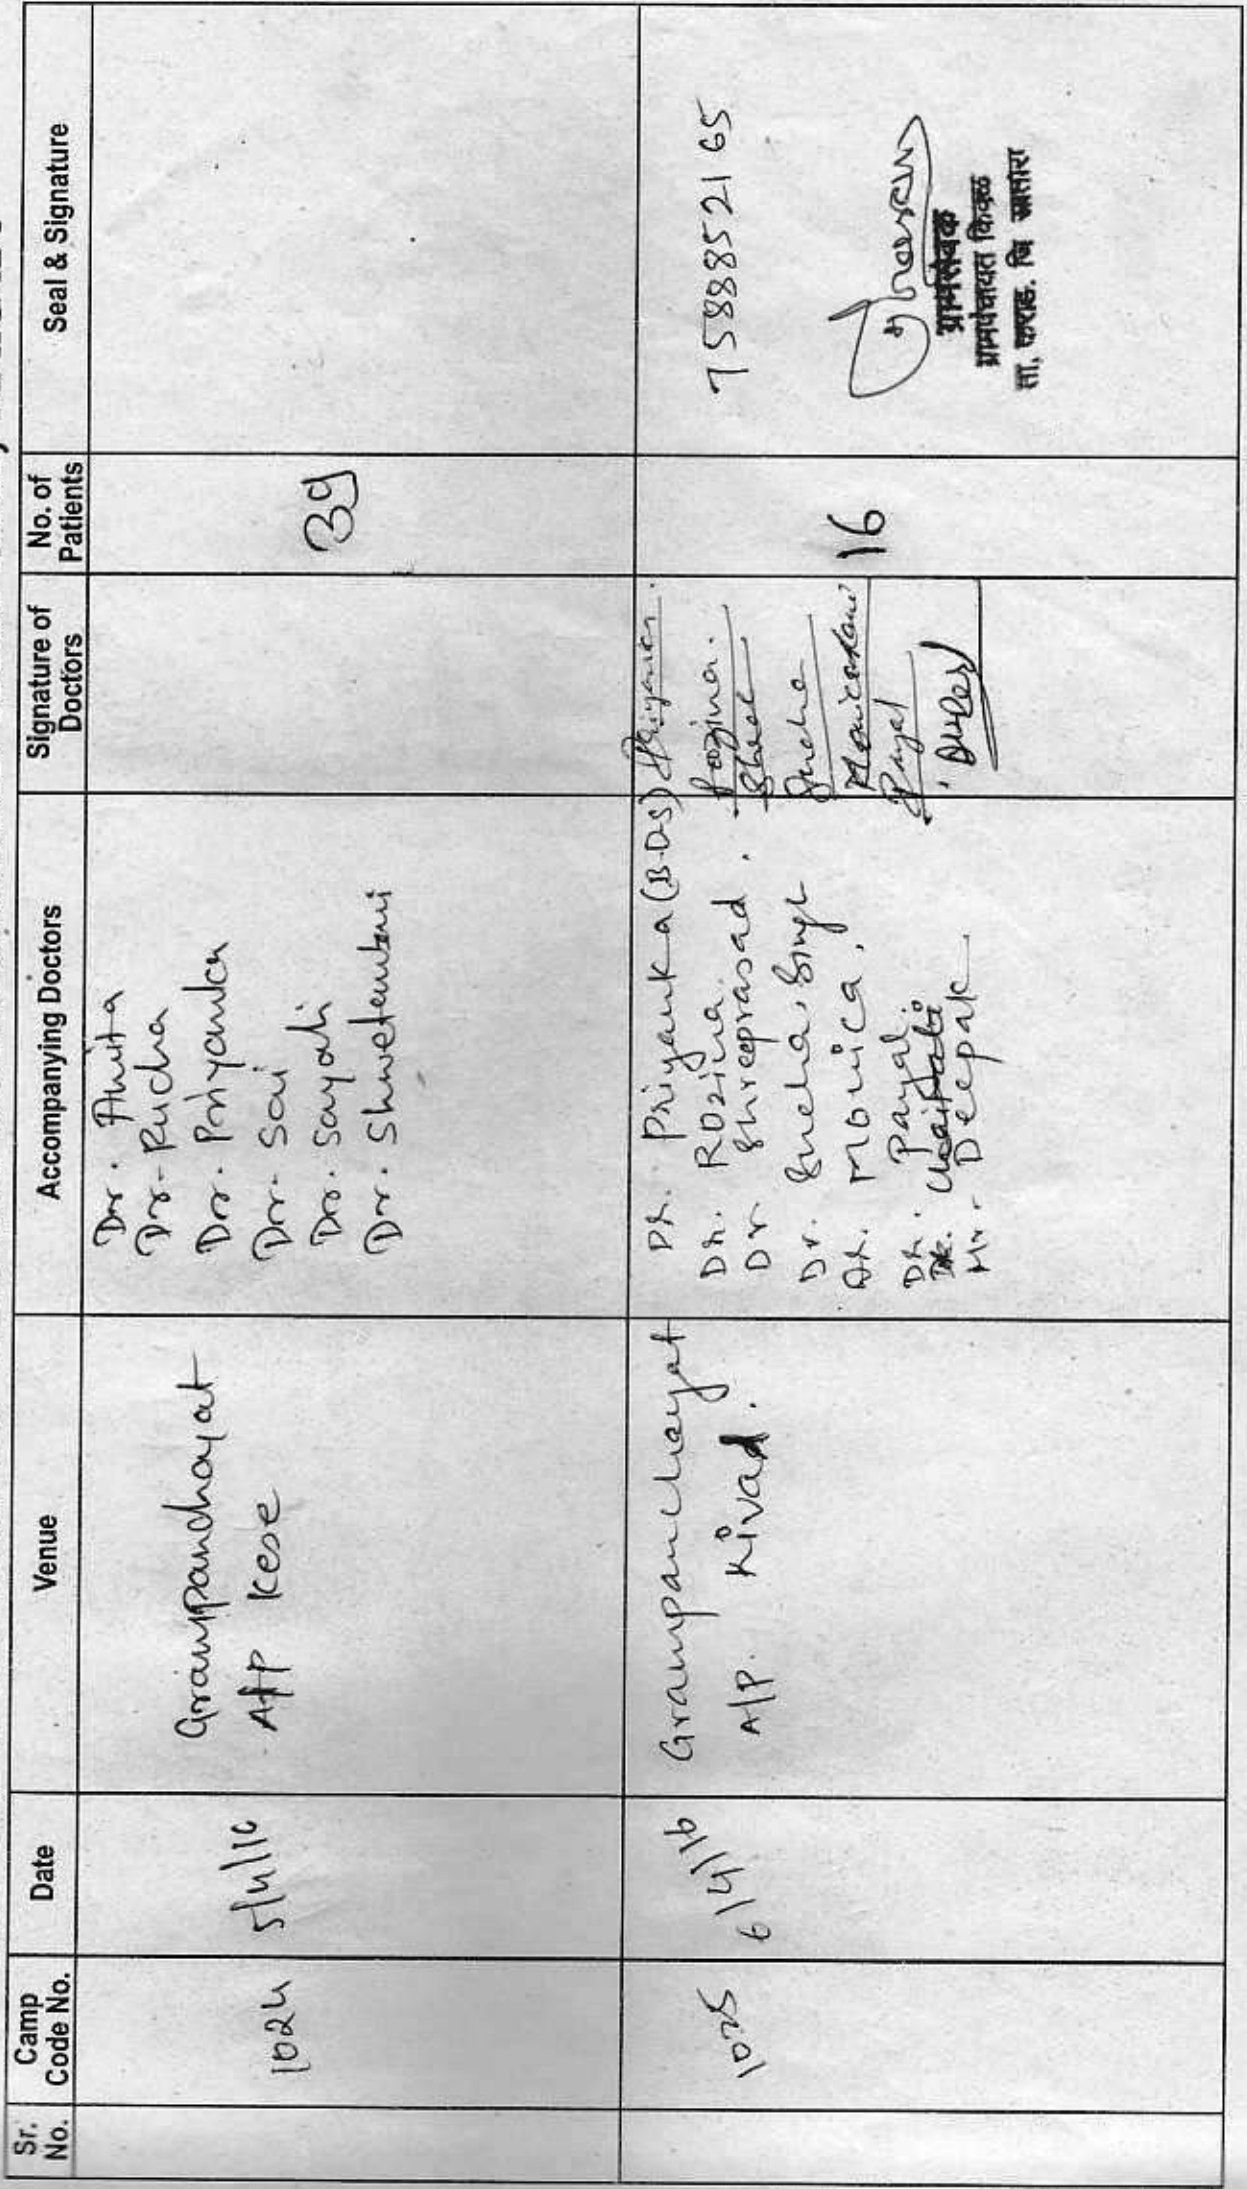 Sr. No.
Camp Code No.
Date
Venue
Accompanying Doctors
Signature of Doctors
No. of Patients
Seal & Signature
1024
5/4/16
Grampanchayat
A/P Kese
Dr. Anita
Dr. Rucha
Dr. Priyanka
Dr. Sai
Dr. Sayali
Dr. Shwetambari
39
1025
6/4/16
Grampanchayat
A/P. Kivad.
Dr. Priyanka (B.D.S)
Dr. Rozina.
Dr Shreeprasad.
Dr. Sneha Singh
Dr. Monica.
Dr. Payal.
Dr.
Mr. Deepak
Priyanka.
Rozina.
Sneha
Payal
16
7588852165
ग्रामसेवक
ग्रामपंचायत
ता. कराड. जि सातारा